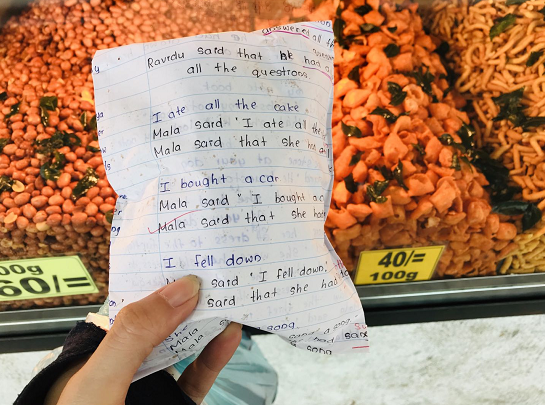 answered all
Ravidu said that he had
all the questions.
I ate all the cake.
Mala said "I ate all the
Mala said that she had
I bought a car
Mala said " I bought a
Mala said that she had
I fell down
said "I fell down.
said that she had
She song
Mala
Mala
song
00g
60/=
40/=
100g